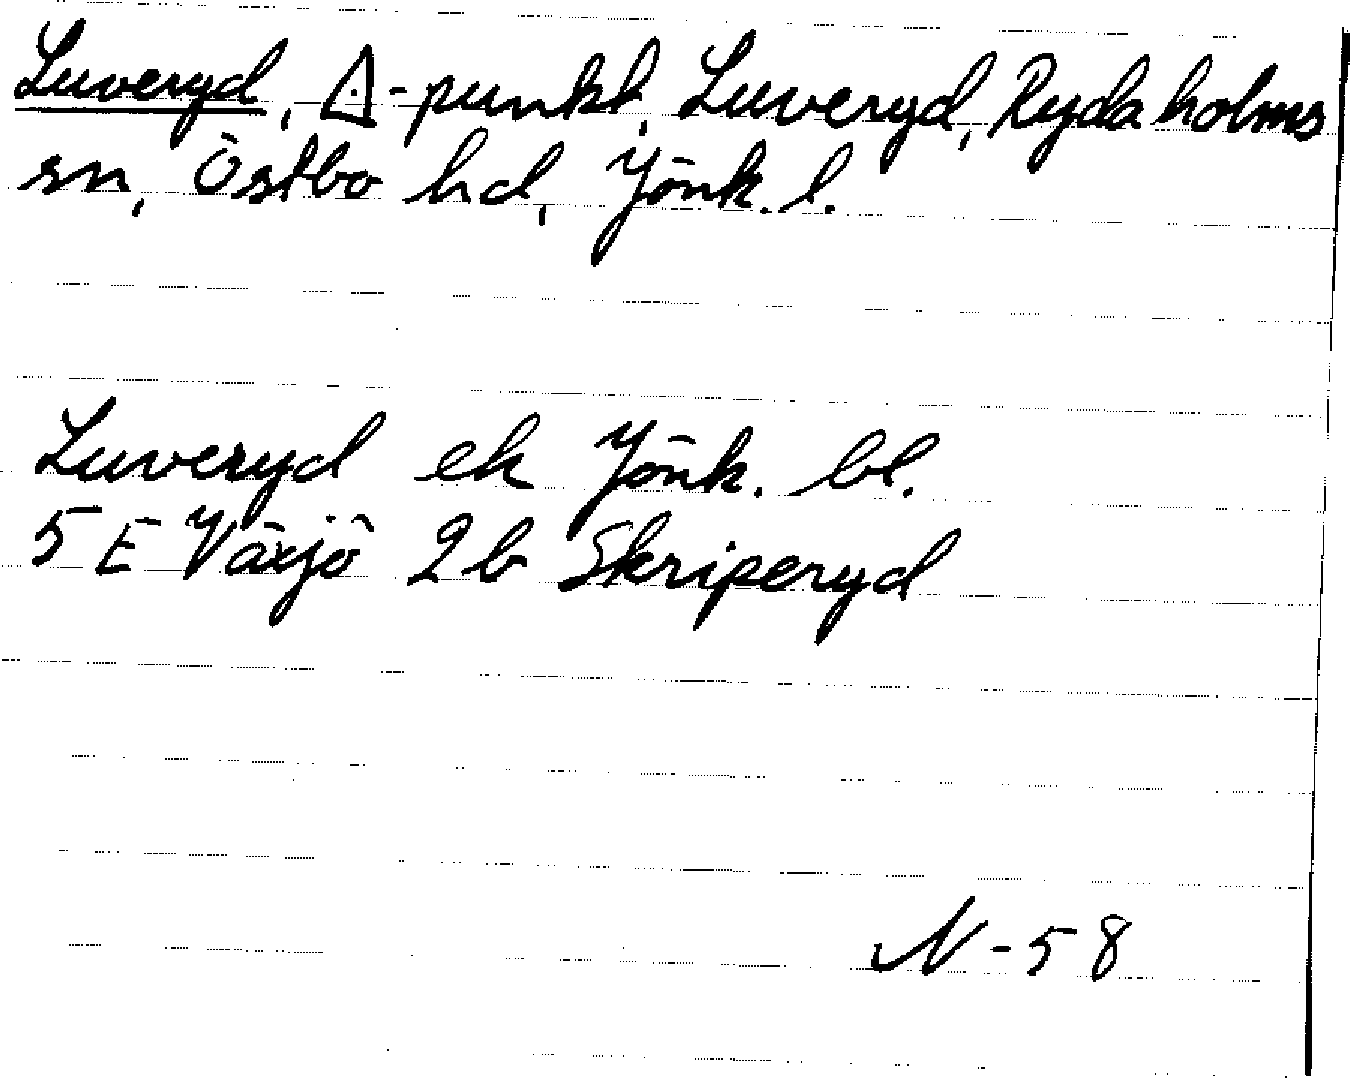 Luveryd, △-punkt, Luveryd, Rydaholms
sn, Östbo hd, Jönk. l.
Luveryd ek Jönk. bl.
5 E Växjö 2b Skriperyd
N-58